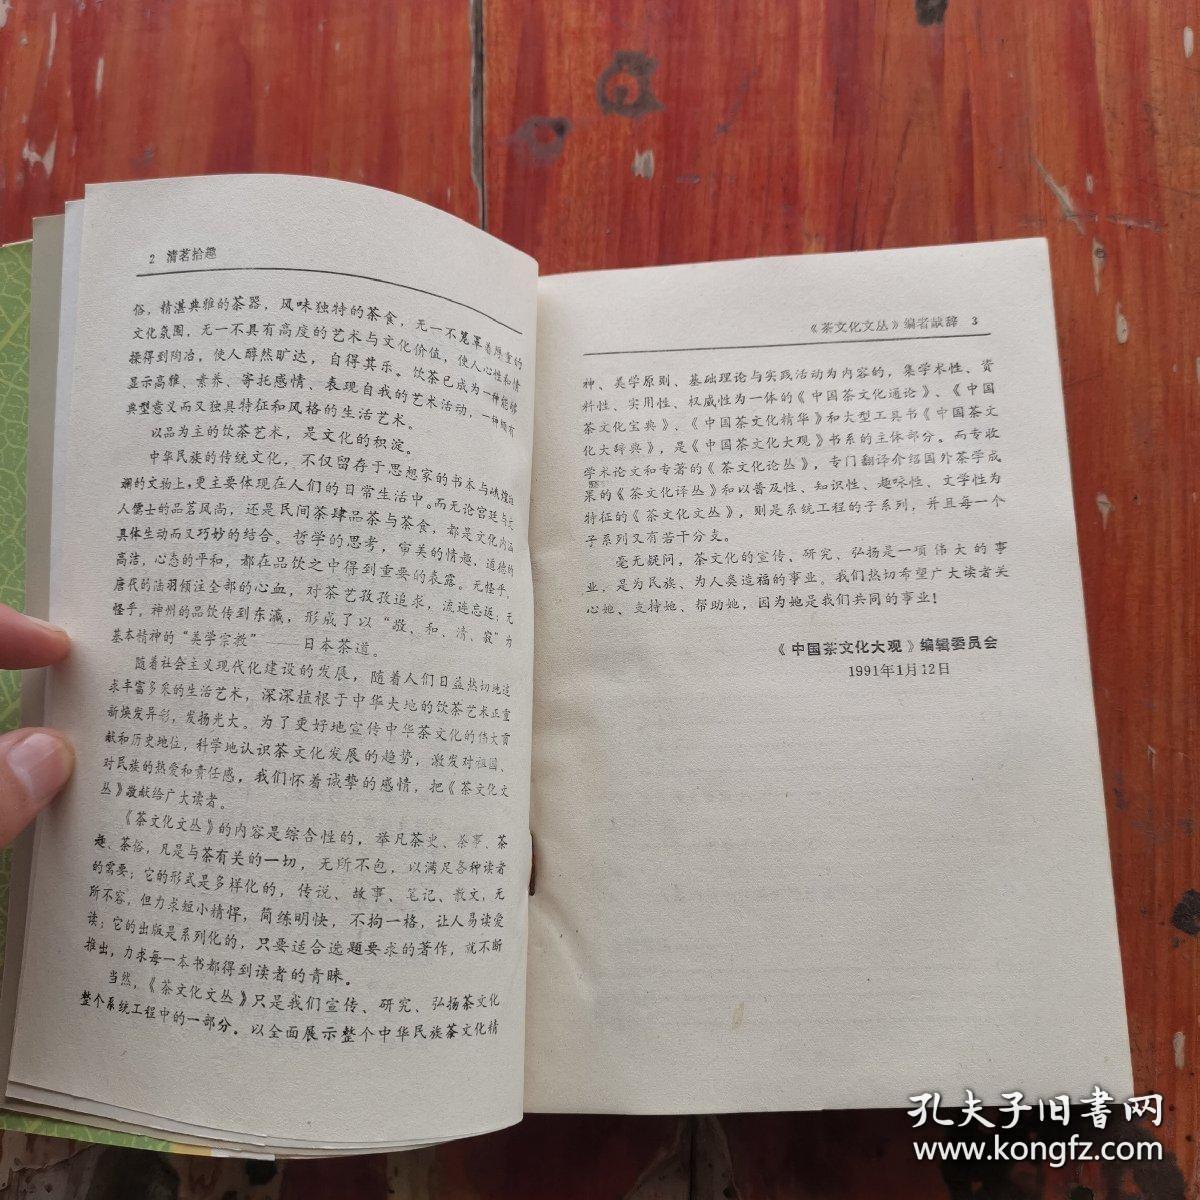 2 清茗拾趣
俗，精湛典雅的茶器，风味独特的茶食，无一不笼罩着厚重的
文化氛围，无一不具有高度的艺术与文化价值，使人心性和情
操得到陶冶，使人醇然旷达，自得其乐。饮茶已成为一种能够
显示高雅、素养、寄托感情、表现自我的艺术活动，一种颇有
典型意义而又独具特征和风格的生活艺术。
以品为主的饮茶艺术，是文化的积淀。
中华民族的传统文化，不仅留存于思想家的书本与
斓的文物上，更主要体现在人们的日常生活中。而无论宫廷与文
人儒士的品茗风尚，还是民间茶肆品茶与茶食，都是文化内涵
具体生动而又巧妙的结合。哲学的思考，审美的情趣，道德的
高洁，心态的平和，都在品饮之中得到重要的表露。无怪乎，
唐代的陆羽倾注全部的心血，对茶艺孜孜追求，流连忘返；无
怪乎，神州的品饮传到东瀛，形成了以“敬、和、清、寂”为
基本精神的“美学宗教”——日本茶道。
随着社会主义现代化建设的发展，随着人们日益热切地追
求丰富多采的生活艺术，深深植根于中华大地的饮茶艺术正重
新焕发异彩，发扬光大。为了更好地宣传中华茶文化的伟大贡
献和历史地位，科学地认识茶文化发展的趋势，激发对祖国、
对民族的热爱和责任感，我们怀着诚挚的感情，把《茶文化文
丛》敬献给广大读者。
《茶文化文丛》的内容是综合性的，举凡茶史、茶事、茶
趣、茶俗，凡是与茶有关的一切，无所不包，以满足各种读者
的需要；它的形式是多样化的，传说、故事、笔记、散文，无
所不容，但力求短小精悍，简练明快，不拘一格，让人易读爱
读；它的出版是系列化的，只要适合选题要求的著作，就不断
推出，力求每一本书都得到读者的青睐。
当然，《茶文化文丛》只是我们宣传、研究、弘扬茶文化
整个系统工程中的一部分。以全面展示整个中华民族茶文化精
《茶文化文丛》编者献辞 3
神、美学原则、基础理论与实践活动为内容的，集学术性、资
料性、实用性、权威性为一体的《中国茶文化通论》、《中国
茶文化宝典》、《中国茶文化精华》和大型工具书《中国茶文
化大辞典》，是《中国茶文化大观》书系的主体部分。而专收
学术论文和专著的《茶文化论丛》，专门翻译介绍国外茶学成
果的《茶文化译丛》和以普及性、知识性、趣味性、文学性为
特征的《茶文化文丛》，则是系统工程的子系列，并且每一个
子系列又有若干分支。
毫无疑问，茶文化的宣传、研究、弘扬是一项伟大的事
业，是为民族、为人类造福的事业。我们热切希望广大读者关
心她、支持她、帮助她，因为她是我们共同的事业！
《中国茶文化大观》编辑委员会
1991年1月12日
孔夫子旧书网
www.kongfz.com